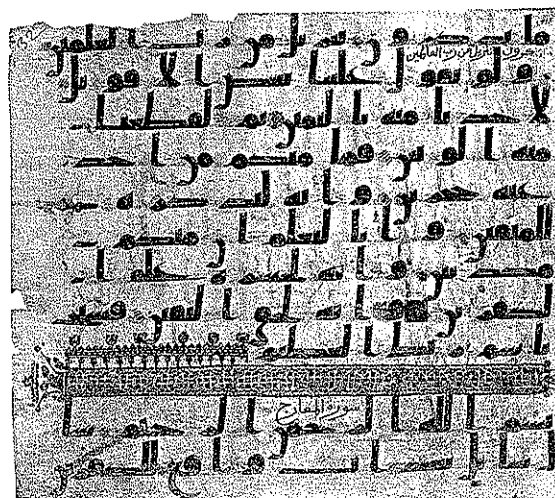 ما تذكرون تنزيل من رب العلمين
تذكرون تنزيل من رب العالمين
ولو تقول علينا بعض الاقويل
لاخذنا منه باليمين ثم لقطعنا
منه الوتين فما منكم من احد
عنه حجزين وانه لتذكرة
للمتقين وانا لنعلم ان منكم
مكذبين وانه لحسرة على ا
لكفرين وانه لحق اليقين فسبح
باسم ربك العظيم
سورة المعارج
بسم الله الرحمن الرحيم
سال سائل بعذاب واقع